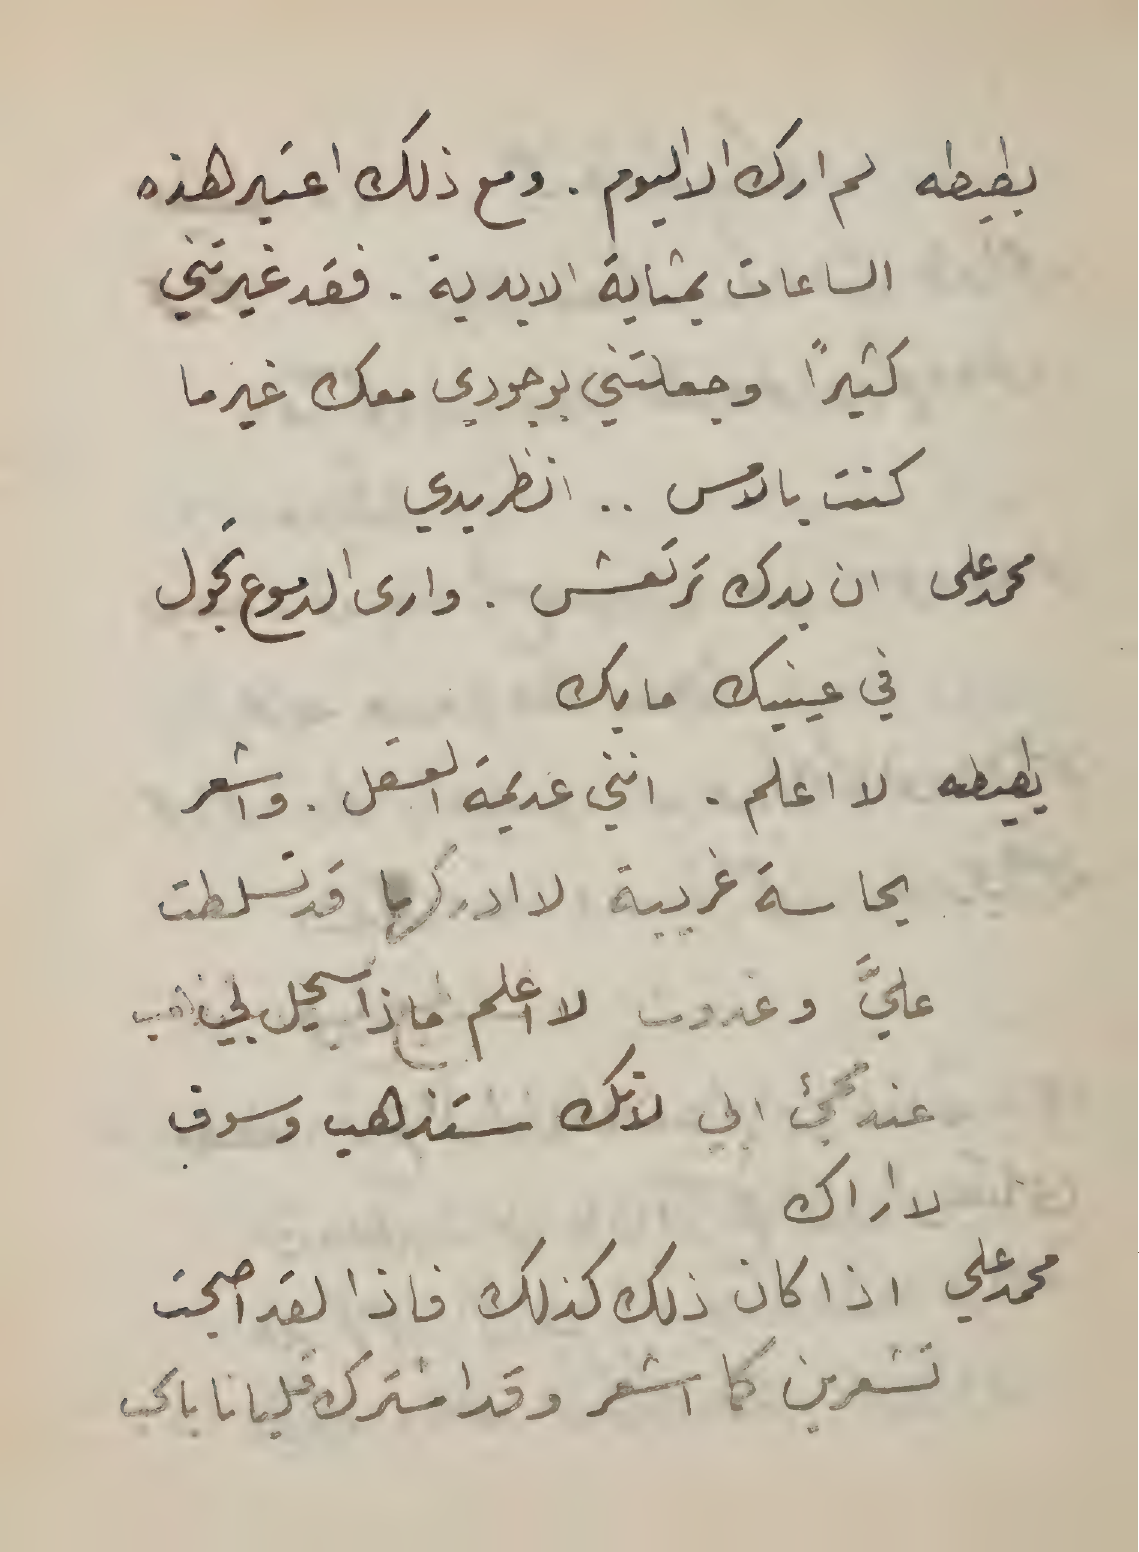 بطيطه لم ارك الا اليوم . ومع ذلك اعتبر هذه
الساعات بمثابة الابدية . فقد غيرتني
كثيرًا وجعلتني بوجودي معك غير ما
كنت بالامس .. انظر يدي
محمد علي ان يدك ترتعش . وارى الدموع تجول
في عينيك ما بك
بطيطه لا اعلم . انني عديمة العقل . واشعر
بحاسة غريبة لا ادركها قد تسلطت
عليَّ وغدوت لا اعلم ماذا سيحل بي
عند مجئ ابي لانك ستذهب وسوف
لا اراك
محمد علي اذا كان ذلك كذلك فاذا لقد اصبحت
تشعرين كما اشعر وقد اشترك قلبانا بالحب